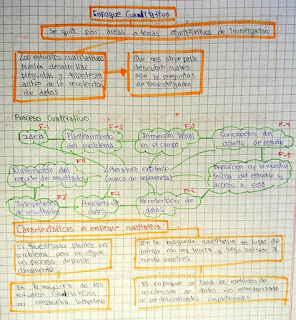 Enfoque Cualitativo
Se guía por áreas o temas significativos de investigación
Los estudios cualitativos
pueden desarrollar
preguntas e hipótesis
antes de la recolección
de datos
Que nos sirve para
descubrir cuáles
son las preguntas
de investigación
Proceso Cualitativo
F-1
Idea
F-2
Planteamiento
del problema
F-3
Inmersión inicial
en el campo
F-4
Concepción del
diseño de estudio
Elaboración del
reporte de resultados
Literatura existente
marco de referencia
F-5
Definición de la muestra
inicial del estudio y
acceso a ésta
F-8
Interpretación
de resultados
F-7
Análisis de
datos
F-6
Recolección de
datos
Características el enfoque cualitativo
El investigador plantea un
problema pero no sigue
un proceso definido
claramente
En la búsqueda cualitativa en lugar de
iniciar con una teoría y luego
En la mayoría de los
estudios cualitativos
no se prueban hipótesis
El enfoque se basa en métodos de
recolección de datos no estandarizados
ni predeterminados completamente